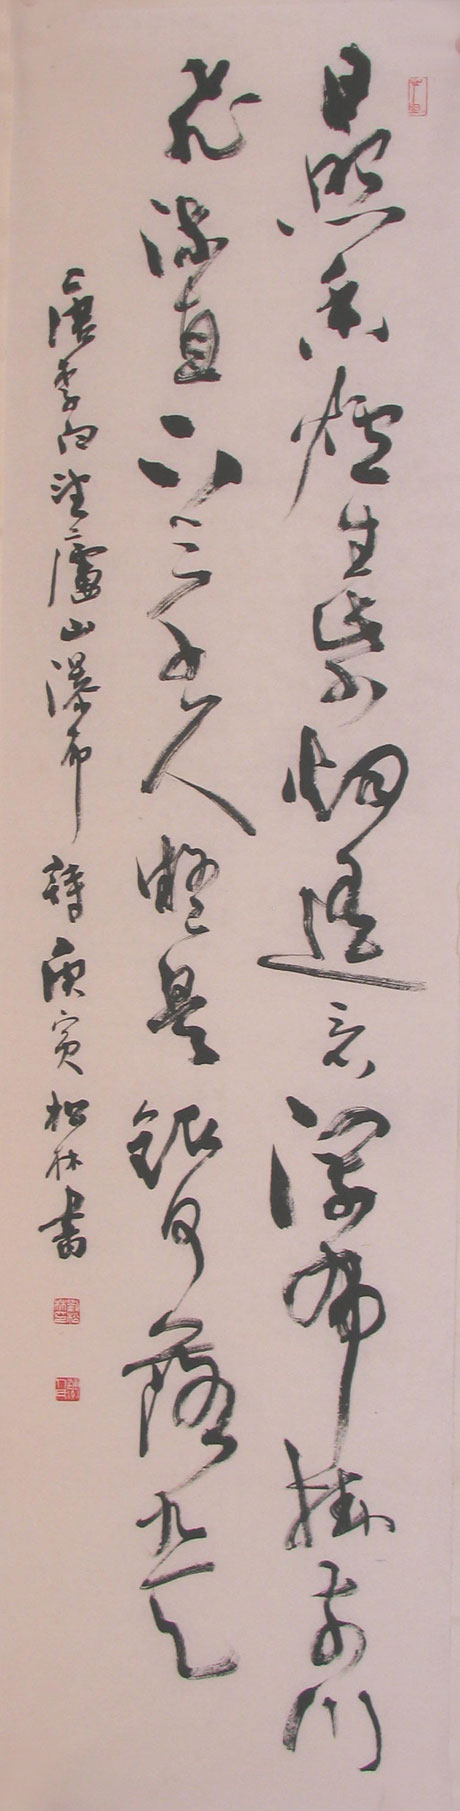 日照香爐生紫烟遙看瀑布掛前川
飛流直下三千尺疑是銀河落九天
唐李白望廬山瀑布詩庚寅松林書